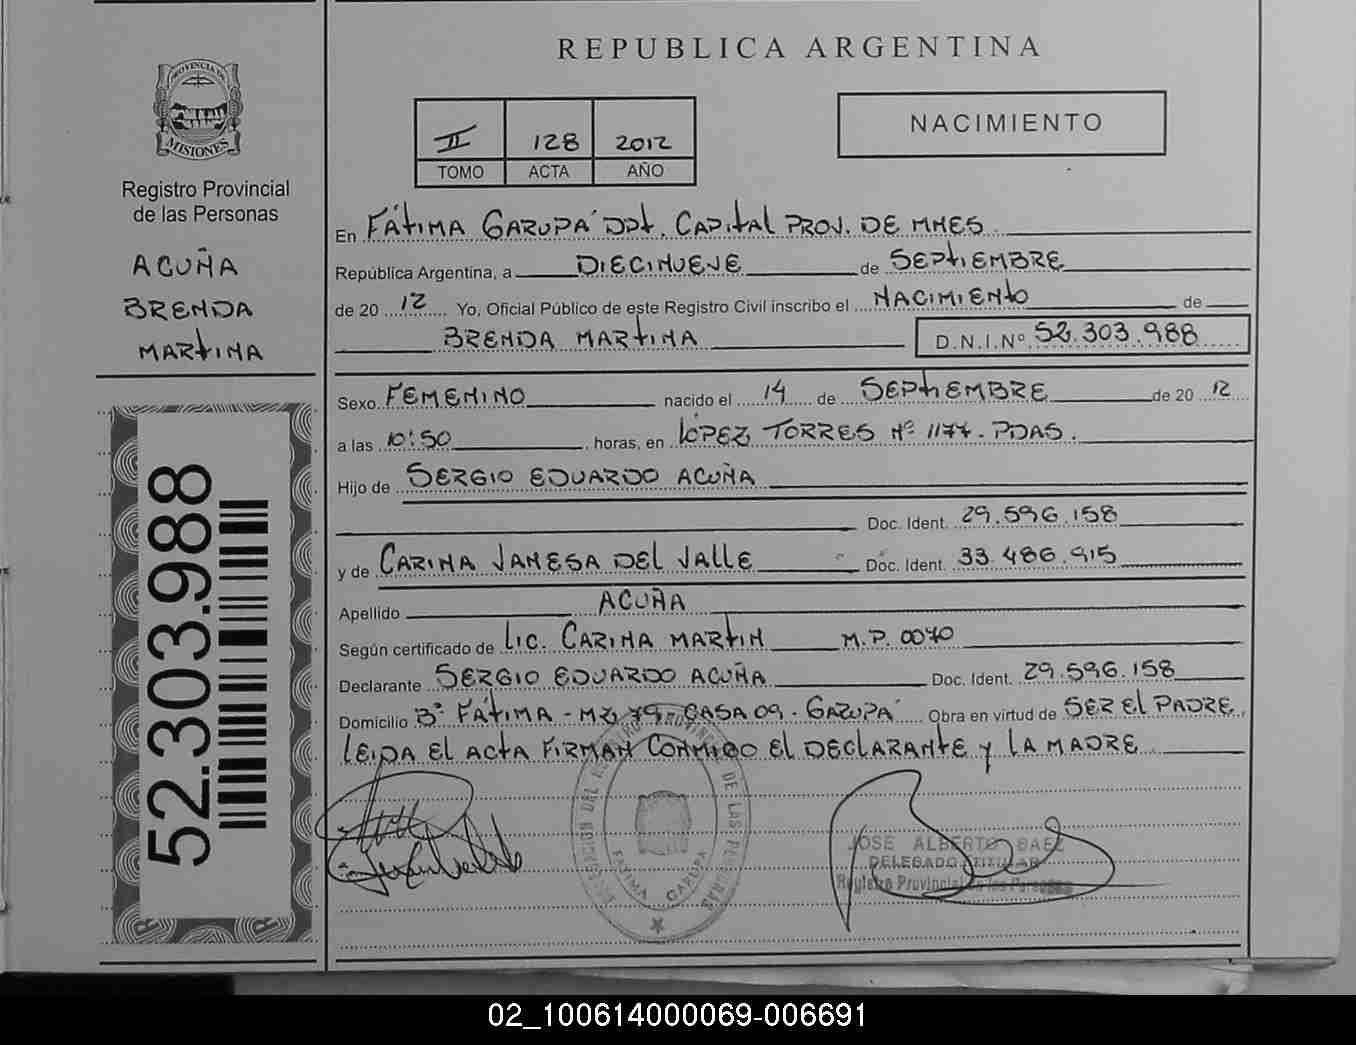 REPUBLICA ARGENTINA
PROVINCIA DE
MISIONES
Registro Provincial
de las Personas
ACUÑA
BRENDA
MARTINA
52.303.988
II 128 2012
TOMO ACTA AÑO
NACIMIENTO
En FÁTIMA GARUPÁ DPT. CAPITAL PROV. DE MNES.
República Argentina, a DIECINUEVE de SEPTIEMBRE
de 20 12 Yo, Oficial Público de este Registro Civil inscribo el NACIMIENTO de
BRENDA MARTINA D.N.I.Nº 52.303.988
Sexo FEMENINO nacido el 14 de SEPTIEMBRE de 20 12
a las 10:50 horas, en LÓPEZ TORRES Nº 1177 - PDAS.
Hijo de SERGIO EDUARDO ACUÑA
Doc. Ident. 29.596.158
y de CARINA VANESA DEL VALLE Doc. Ident. 33.486.915
Apellido ACUÑA
Según certificado de LIC. CARINA MARTIN M.P. 0070
Declarante SERGIO EDUARDO ACUÑA Doc. Ident. 29.596.158
Domicilio Bº FÁTIMA - MZ 79 - CASA 09 - GARUPÁ Obra en virtud de SER EL PADRE.
LEIDA EL ACTA FIRMAN CONMIGO EL DECLARANTE y LA MADRE
DE LAS PERSONAS
FATIMA GARUPA
JOSE ALBERTO BAEZ
DELEGADO TITULAR
Registro Provincial de las Personas
02_100614000069-006691